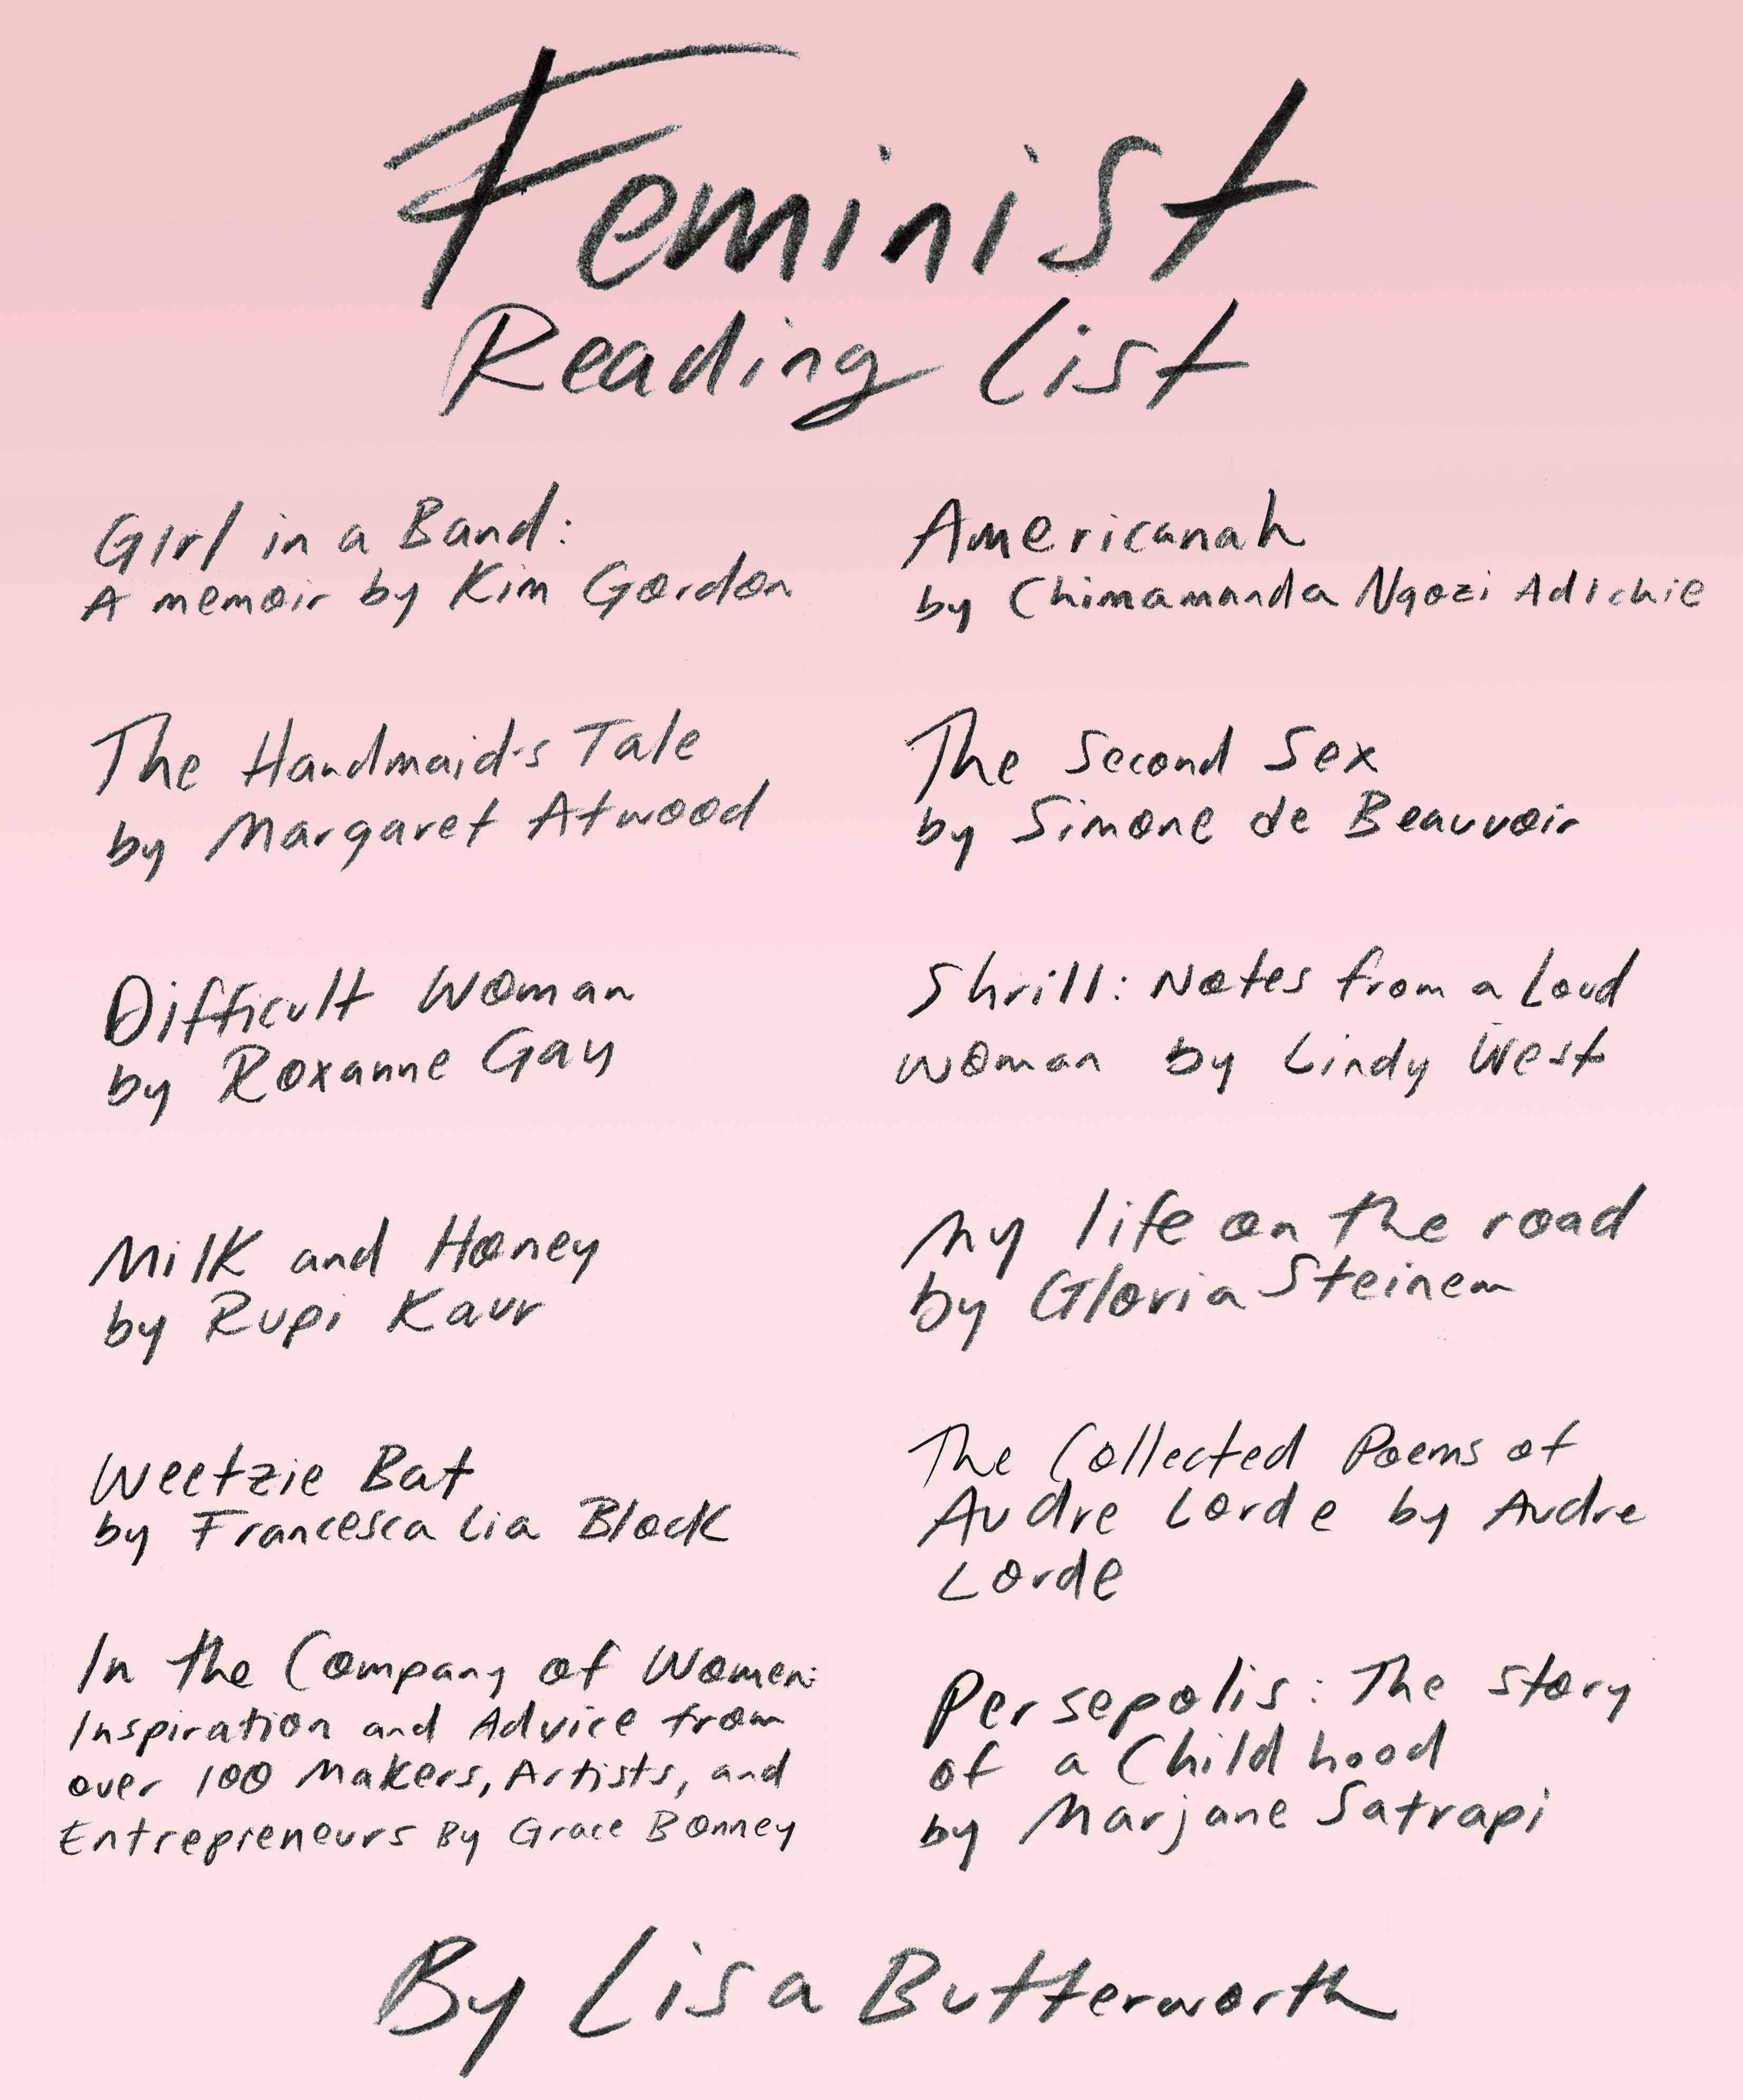 Feminist
Reading List
Girl in a Band:
A memoir by Kim Gordon
The Handmaid's Tale
by Margaret Atwood
Difficult Woman
by Roxanne Gay
Milk and Honey
by Rupi Kaur
Weetzie Bat
by Francesca Lia Block
In the Company of Women:
Inspiration and Advice from
over 100 Makers, Artists, and
Entrepreneurs By Grace Bonney
Americanah
by Chimamanda Ngozi Adichie
The Second Sex
by Simone de Beauvoir
Shrill: Notes from a Loud
woman by Lindy West
My life on the road
by Gloria Steinem
The Collected Poems of
Audre Lorde by Audre
Lorde
Persepolis: The story
of a Childhood
by Marjane Satrapi
By Lisa Butterworth